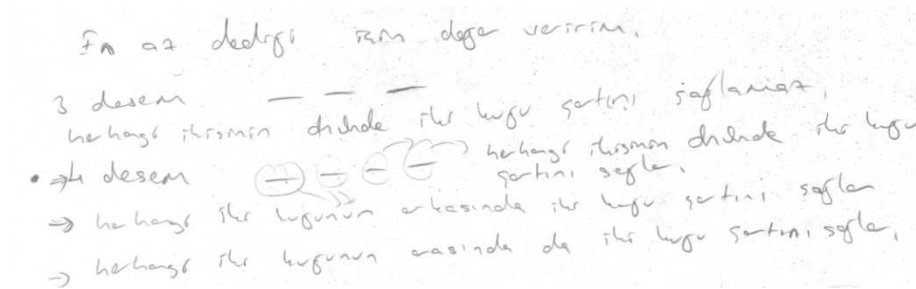 En az dediği için değer veririm.
3 desem — — —
herhangi ikisinin önünde iki kuğu şartını sağlamaz.
• → 4 desem — — — — herhangi ikisinin önünde iki kuğu şartını sağlar.
→ herhangi iki kuğunun arkasında iki kuğu şartını sağlar
→ herhangi iki kuğunun arasında da iki kuğu şartını sağlar.